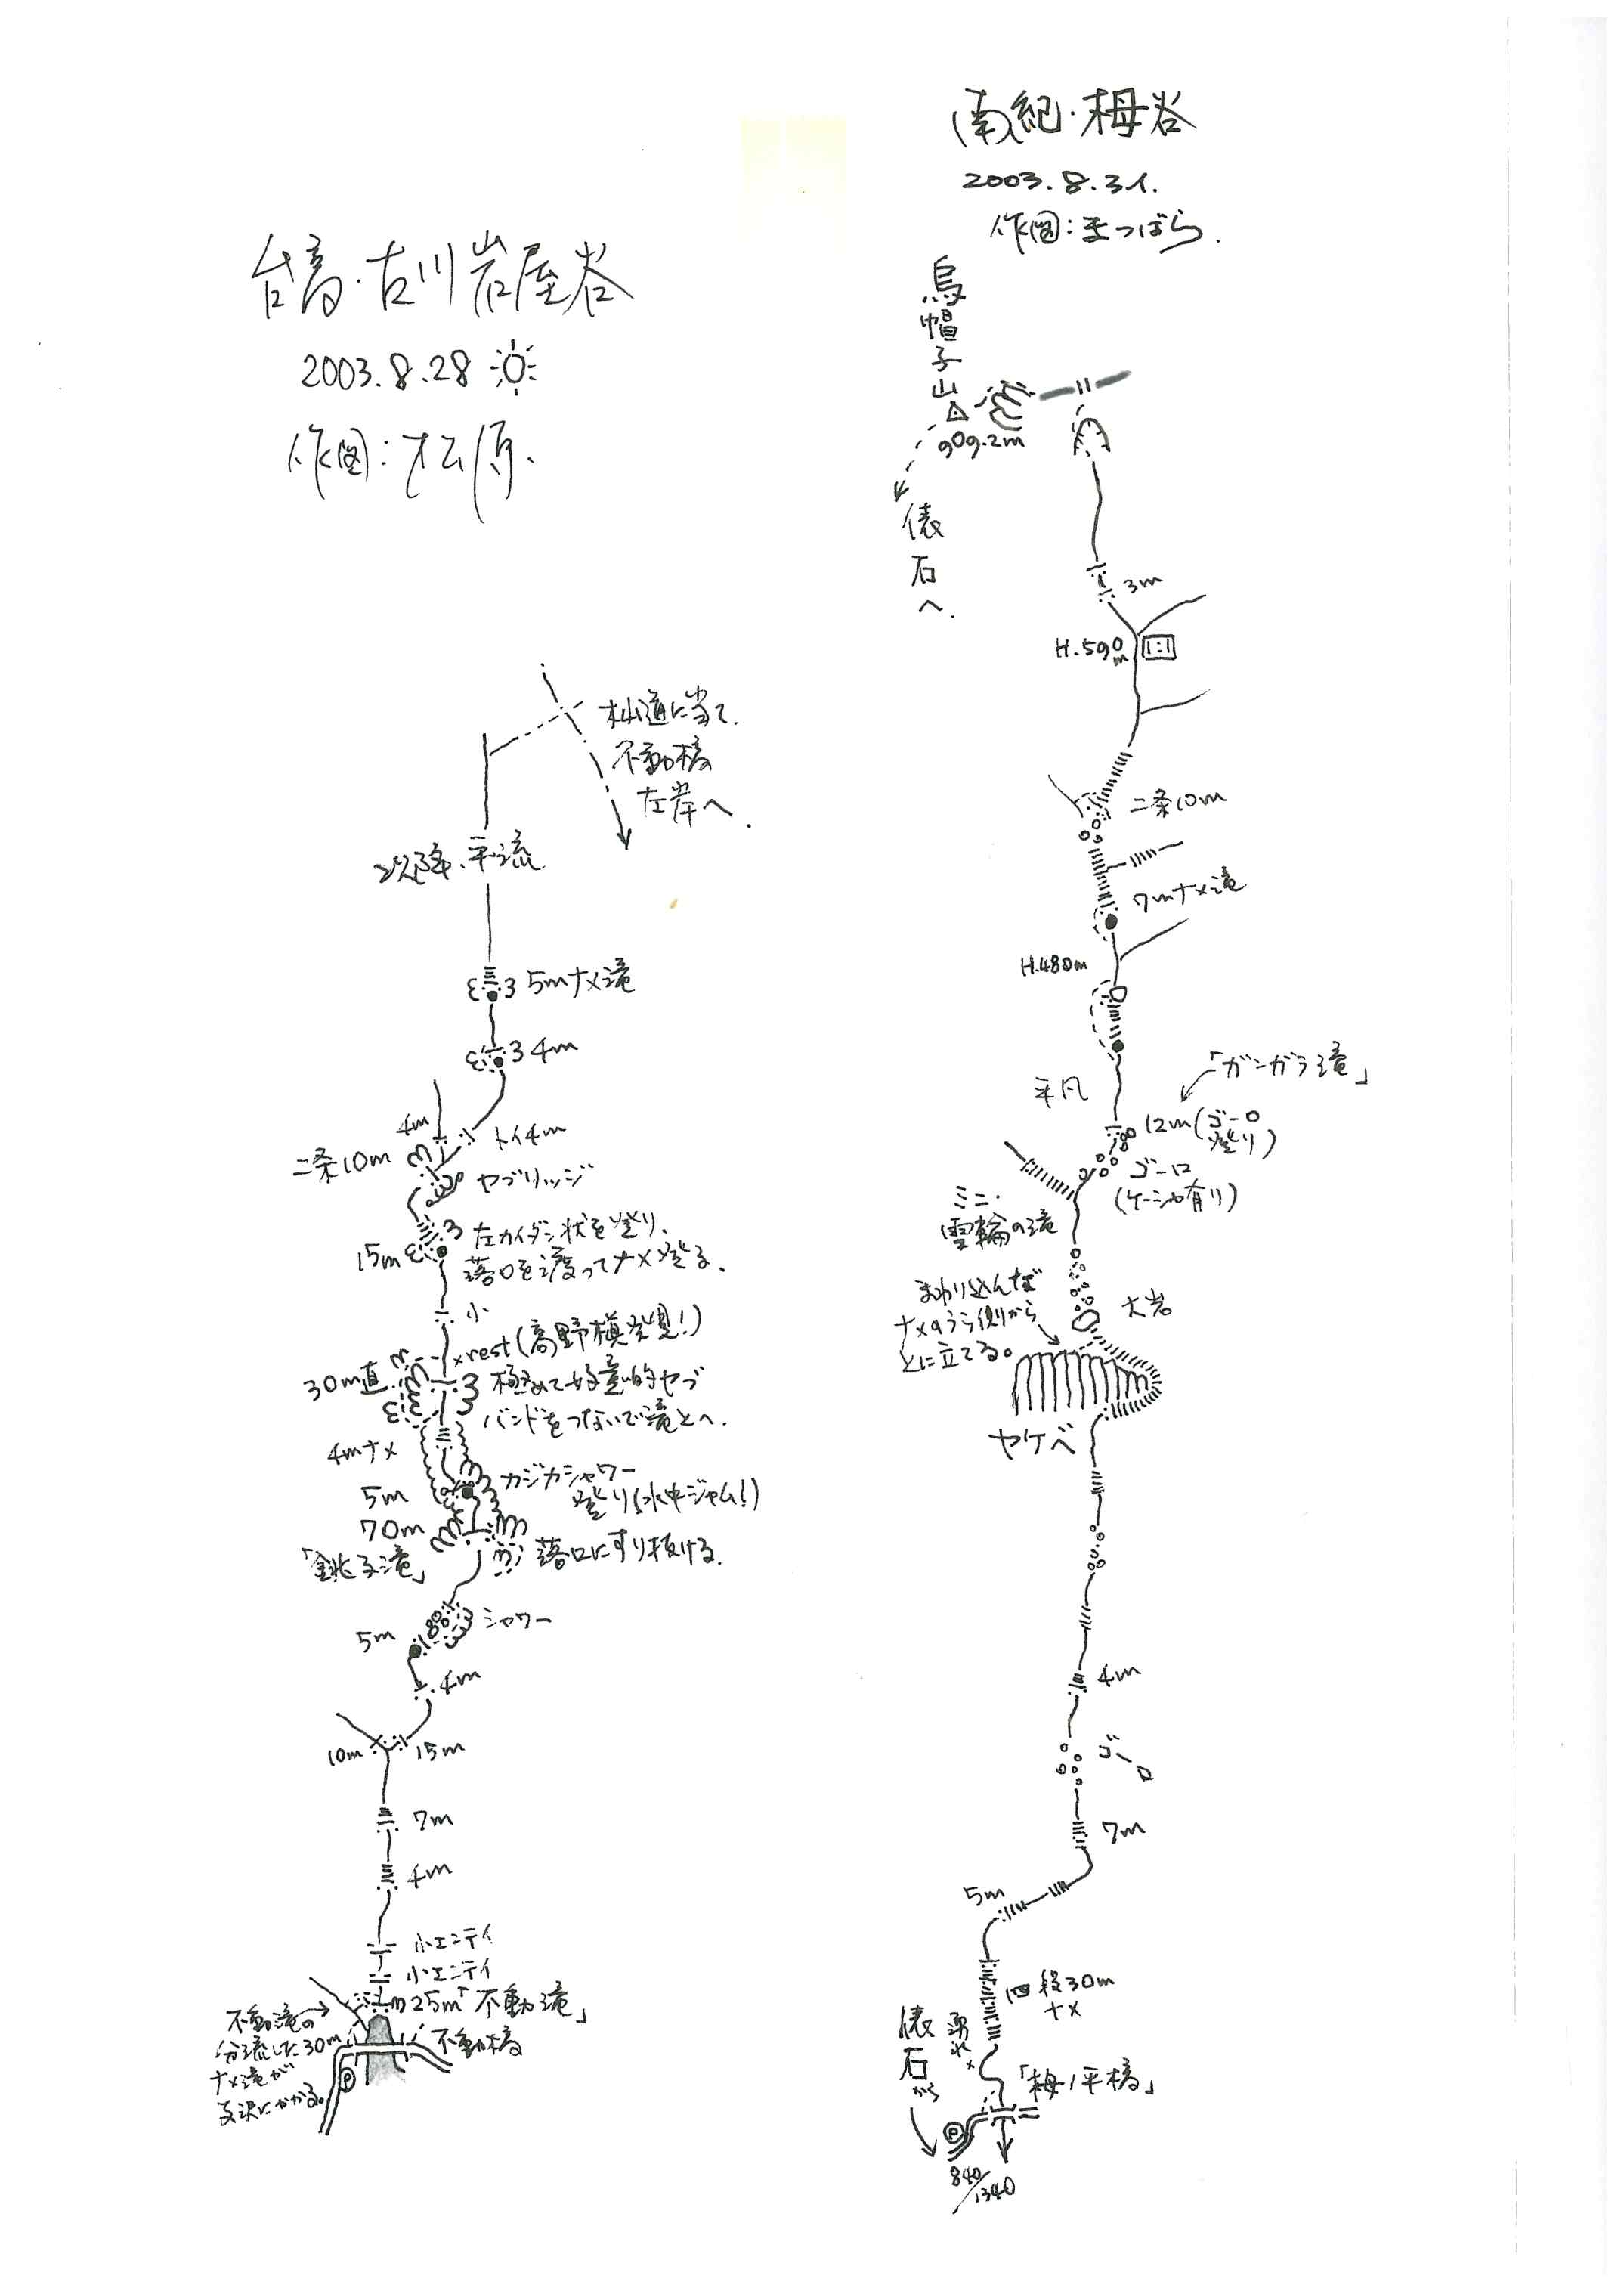 台高・古川岩屋谷
2003.8.28
作図:松原.
杣道に当て、
不動橋
左岸へ.
以降、平流
5mナメ滝
4m
4m
トイ4m
二条10m
ヤブリッジ
15m
左カイダン状を登り、
落口を渡ってナメ登る.
小
xrest(高野槙発見!)
30m直
極めて好意的ヤブ
バンドをつないで滝上へ.
4mナメ
5m
カジカシャワー
登り(水中ジャム!)
70m
「銚子滝」
落口にすり抜ける.
5m
シャワー
4m
10m
15m
7m
4m
小エンテイ
小エンテイ
25m「不動滝」
不動橋
不動滝の
分流した30m
ナメ滝が
支沢にかかる。
P
南紀・栂谷
2003.8.31.
作図:まつばら.
烏帽子山
909.2m
俵石へ.
3m
H.590m
1:1
二条10m
7mナメ滝
H.480m
平凡
「ガンガラ滝」
12m(ゴーロ
登り)
ゴーロ
(ケーシャ有り)
ミニ・
雪輪の滝
まわり込んだ
ナメのうら側から
上に立てる。
大岩
ヤケベ
4m
ゴーロ
7m
5m
四段30m
ナメ
湧水x
俵石から
「栂ノ平橋」
P
840/1340